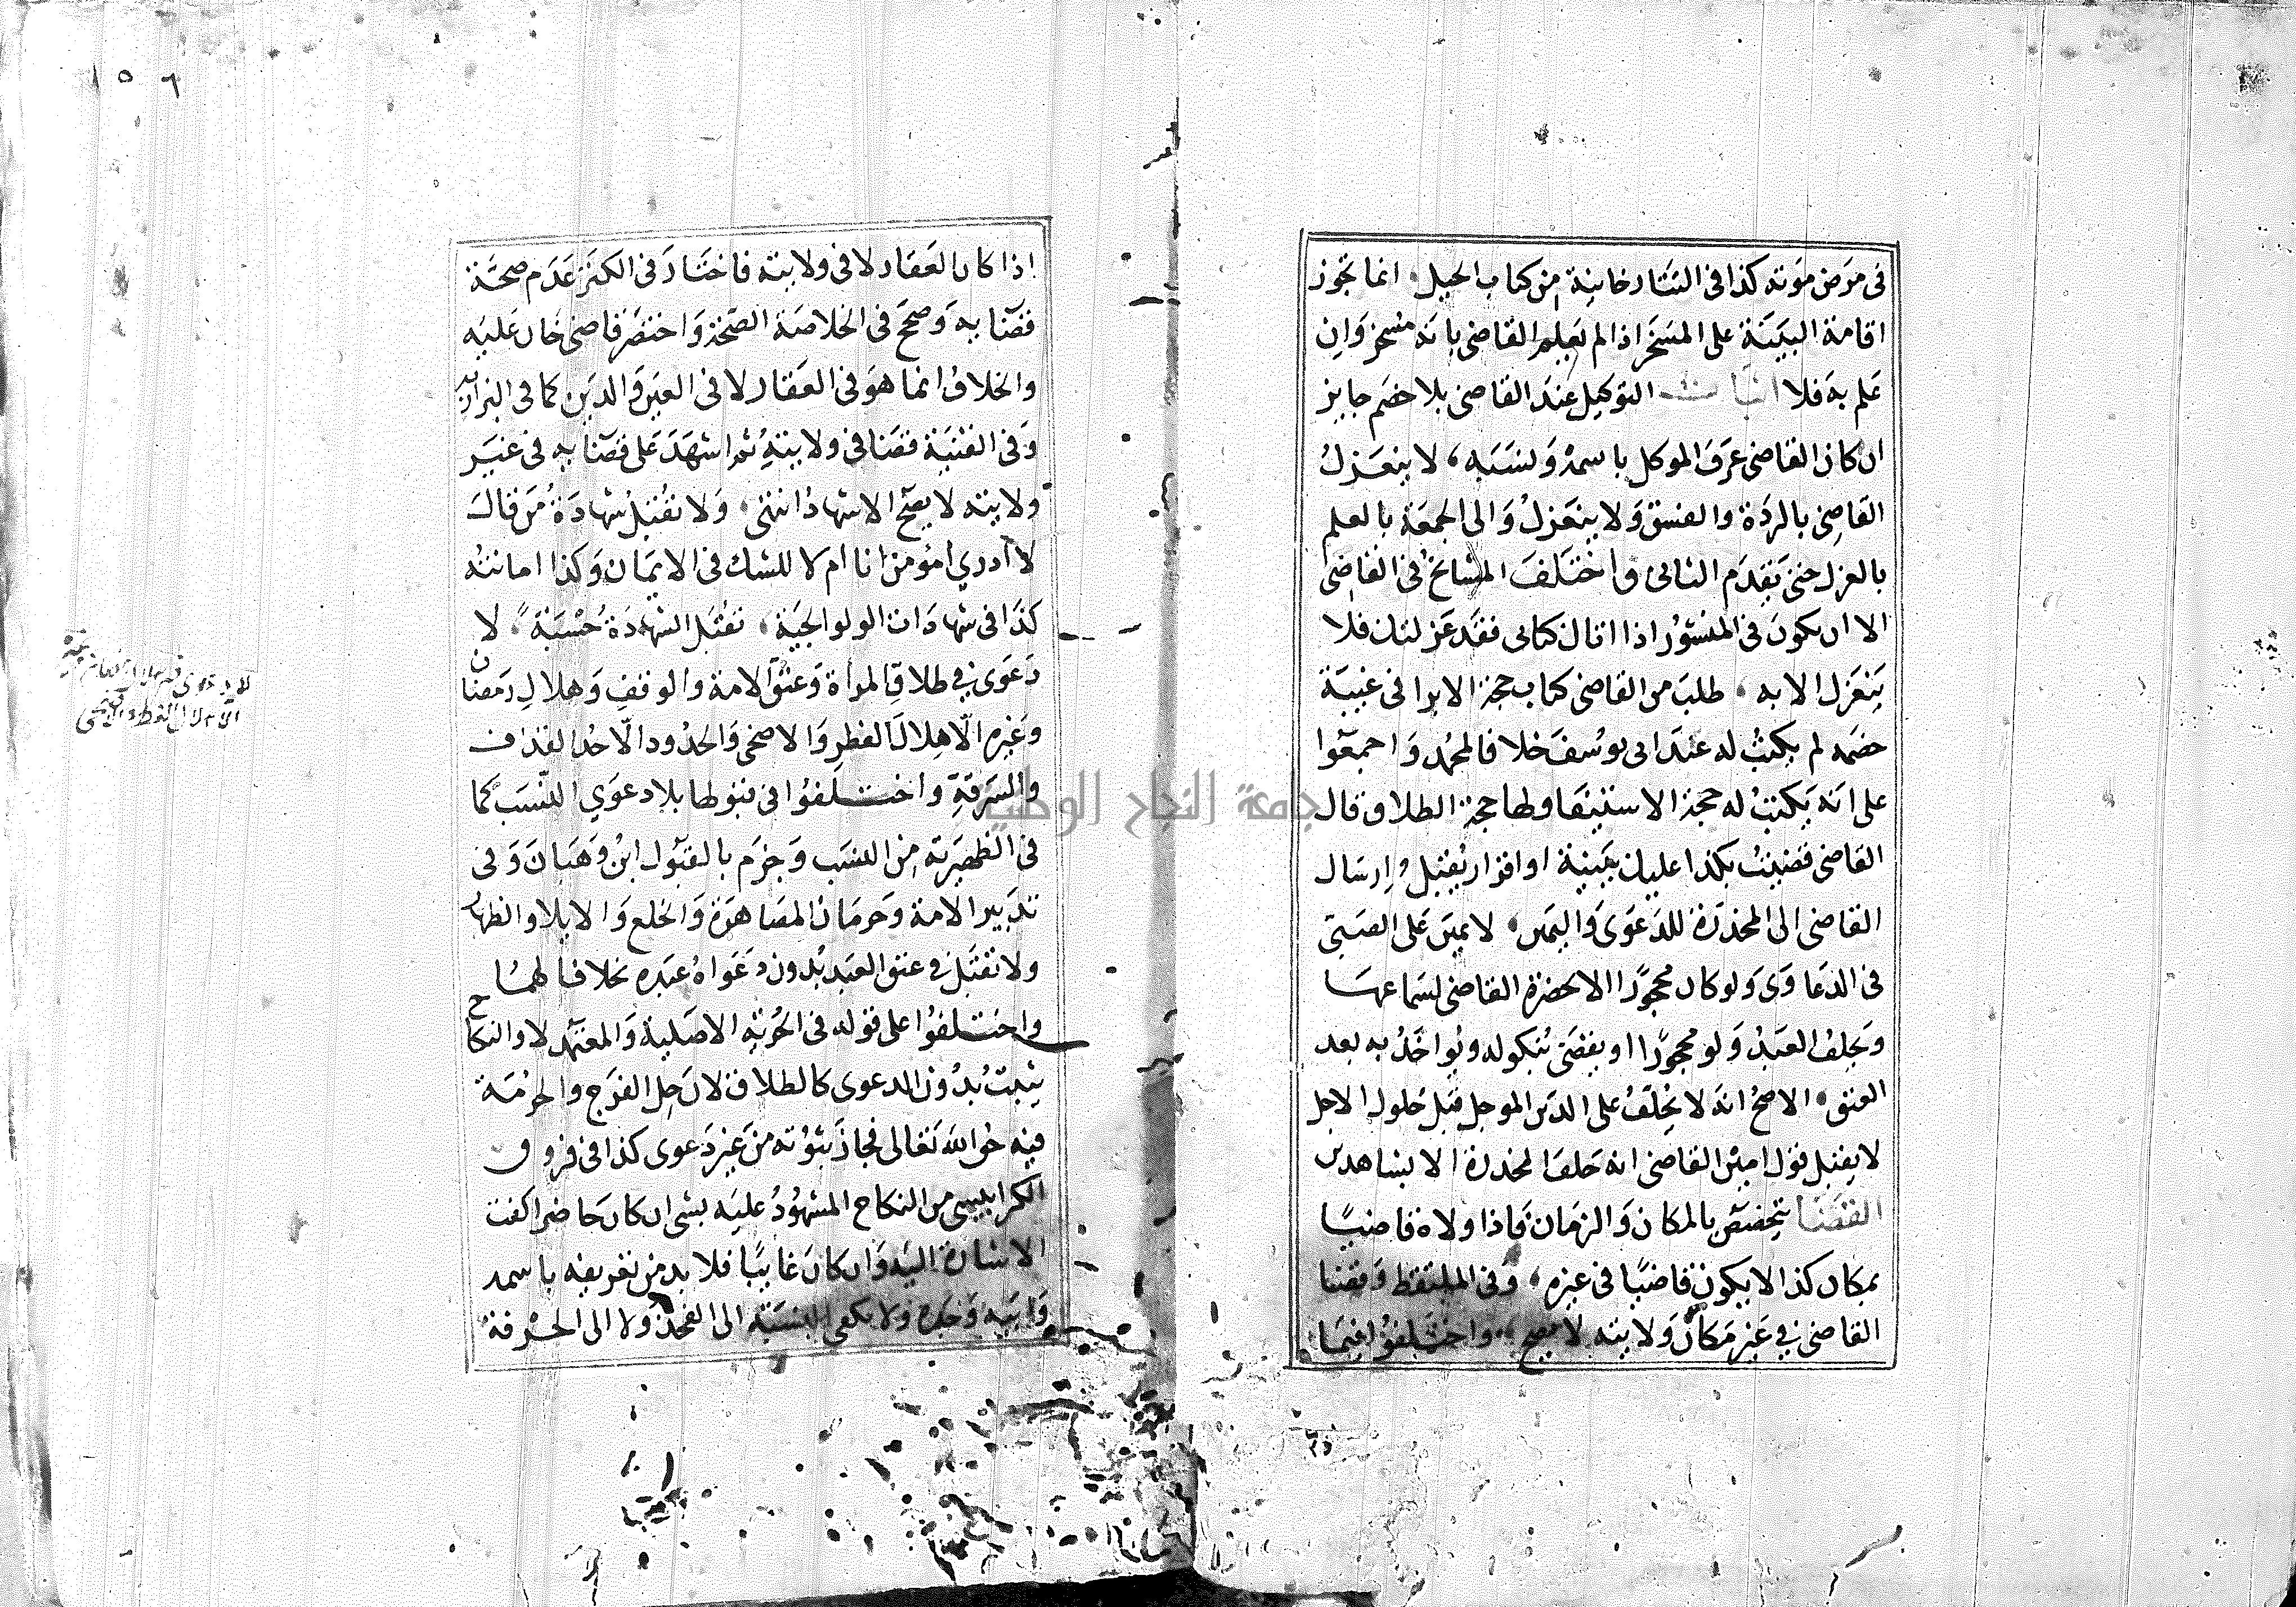 في مرض موته كذا في التتارخانية من كتاب الحيل انما تجوز
اقامة البينة على المسخر اذا لم يعلم القاضي بانه مسخر وان
علم به فلا اثبات التوكيل عند القاضي بلا خصم جايز
ان كان القاضي عرف الموكل باسمه ونسبه لا ينعزل
القاضي بالردة والفسق ولا ينعزل والى الجمعة بالعلم
بالعزل حتى يقدم الثاني واختلف المشايخ في القاضي
الا ان يكون في المنشور اذا اتاك كتابي فقد عزلتك فلا
ينعزل الا به طلب من القاضي كتاب حجة الابرا في غيبة
خصمه لم يكتب له عند ابي يوسف خلافا لمحمد واجمعوا
على انه يكتب له حجة الاستيفا ولها حجة الطلاق قال
القاضي قضيت بكذا عليك ببينة او اقرار يقبل وارسال
القاضي الى المخدرة للدعوى واليمين لا يمين على الصبي
في الدعاوى ولو كان محجورا الا لحضرة القاضي لسماعها
ويحلف العبد ولو محجورا او يقضى بنكوله ويواخذ به بعد
العتق الاصح انه لا يحلف على الدين الموجل قبل حلول الاجل
لا يقبل قول امين القاضي انه حلف المخدرة الا بشاهدين
القضا يتخصص بالمكان والزمان فاذا ولاه قاضيا
بمكان كذا لا يكون قاضيا في غيره وفي الملتقط وقضا
القاضي في غير مكان ولايته لا يصح واختلفوا فيما
اذا كان العقار لا في ولايته فاختار في الكنز عدم صحة
قضائه وصحح في الخلاصة الصحة واختصر قاضي خان عليه
والخلاف انما هو في العقار لا في العين والدين كما في البزازية
وفي القنية قضا في ولايته ثم اشهد على قضائه في غير
ولايته لا يصح الاشهاد انتهى ولا تقبل شهادة من قال
لا ادري امؤمن انا ام لا للشك في الايمان وكذا امامته
كذا في شهادات الولوالجية تقبل الشهادة حسبة لا
دعوى في طلاق المرأة وعتق الامة والوقف وهلال رمضان
وغيره الا هلال الفطر والاضحى والحدود الا حد القذف
والسرقة واختلفوا في قبولها بلا دعوى النسب كما
في الظهيرية من النسب وجزم بالقبول ابن وهبان وفي
تدبير الامة وحرمة المصاهرة والخلع والايلا والظهار
ولا تقبل في عتق العبد بدون دعواه عبده خلافا لهما
واختلفوا على قوله في الحرية الاصلية والمعتمد لا والنكاح
يثبت بدون الدعوى كالطلاق لان حل الفرج والحرمة
فيه حق الله تعالى فجاز ثبوته من غير دعوى كذا في فروق
الكرابيسي من النكاح المشهود عليه بشي ان كان حاضرا كفت
الاشارة اليه وان كان غايبا فلا بد من تعريفه باسمه
وابيه وجده ولا يكفي النسبة الى الفخذ ولا الى الحرفة
١٥٦
جامعة النجاح الوطنية